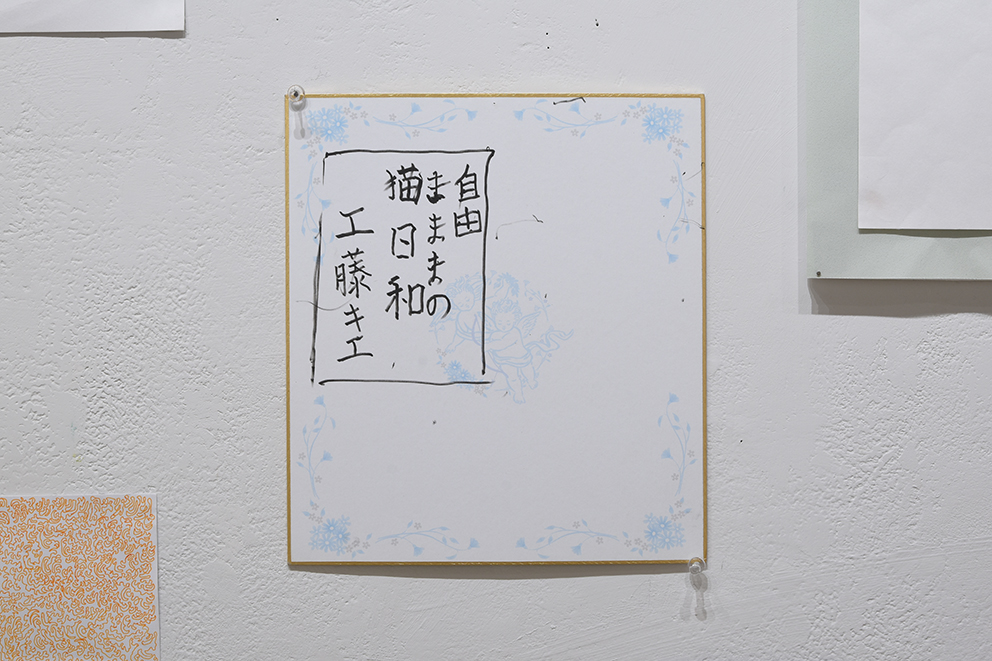 自由
ままままの
猫日和
工藤キエ